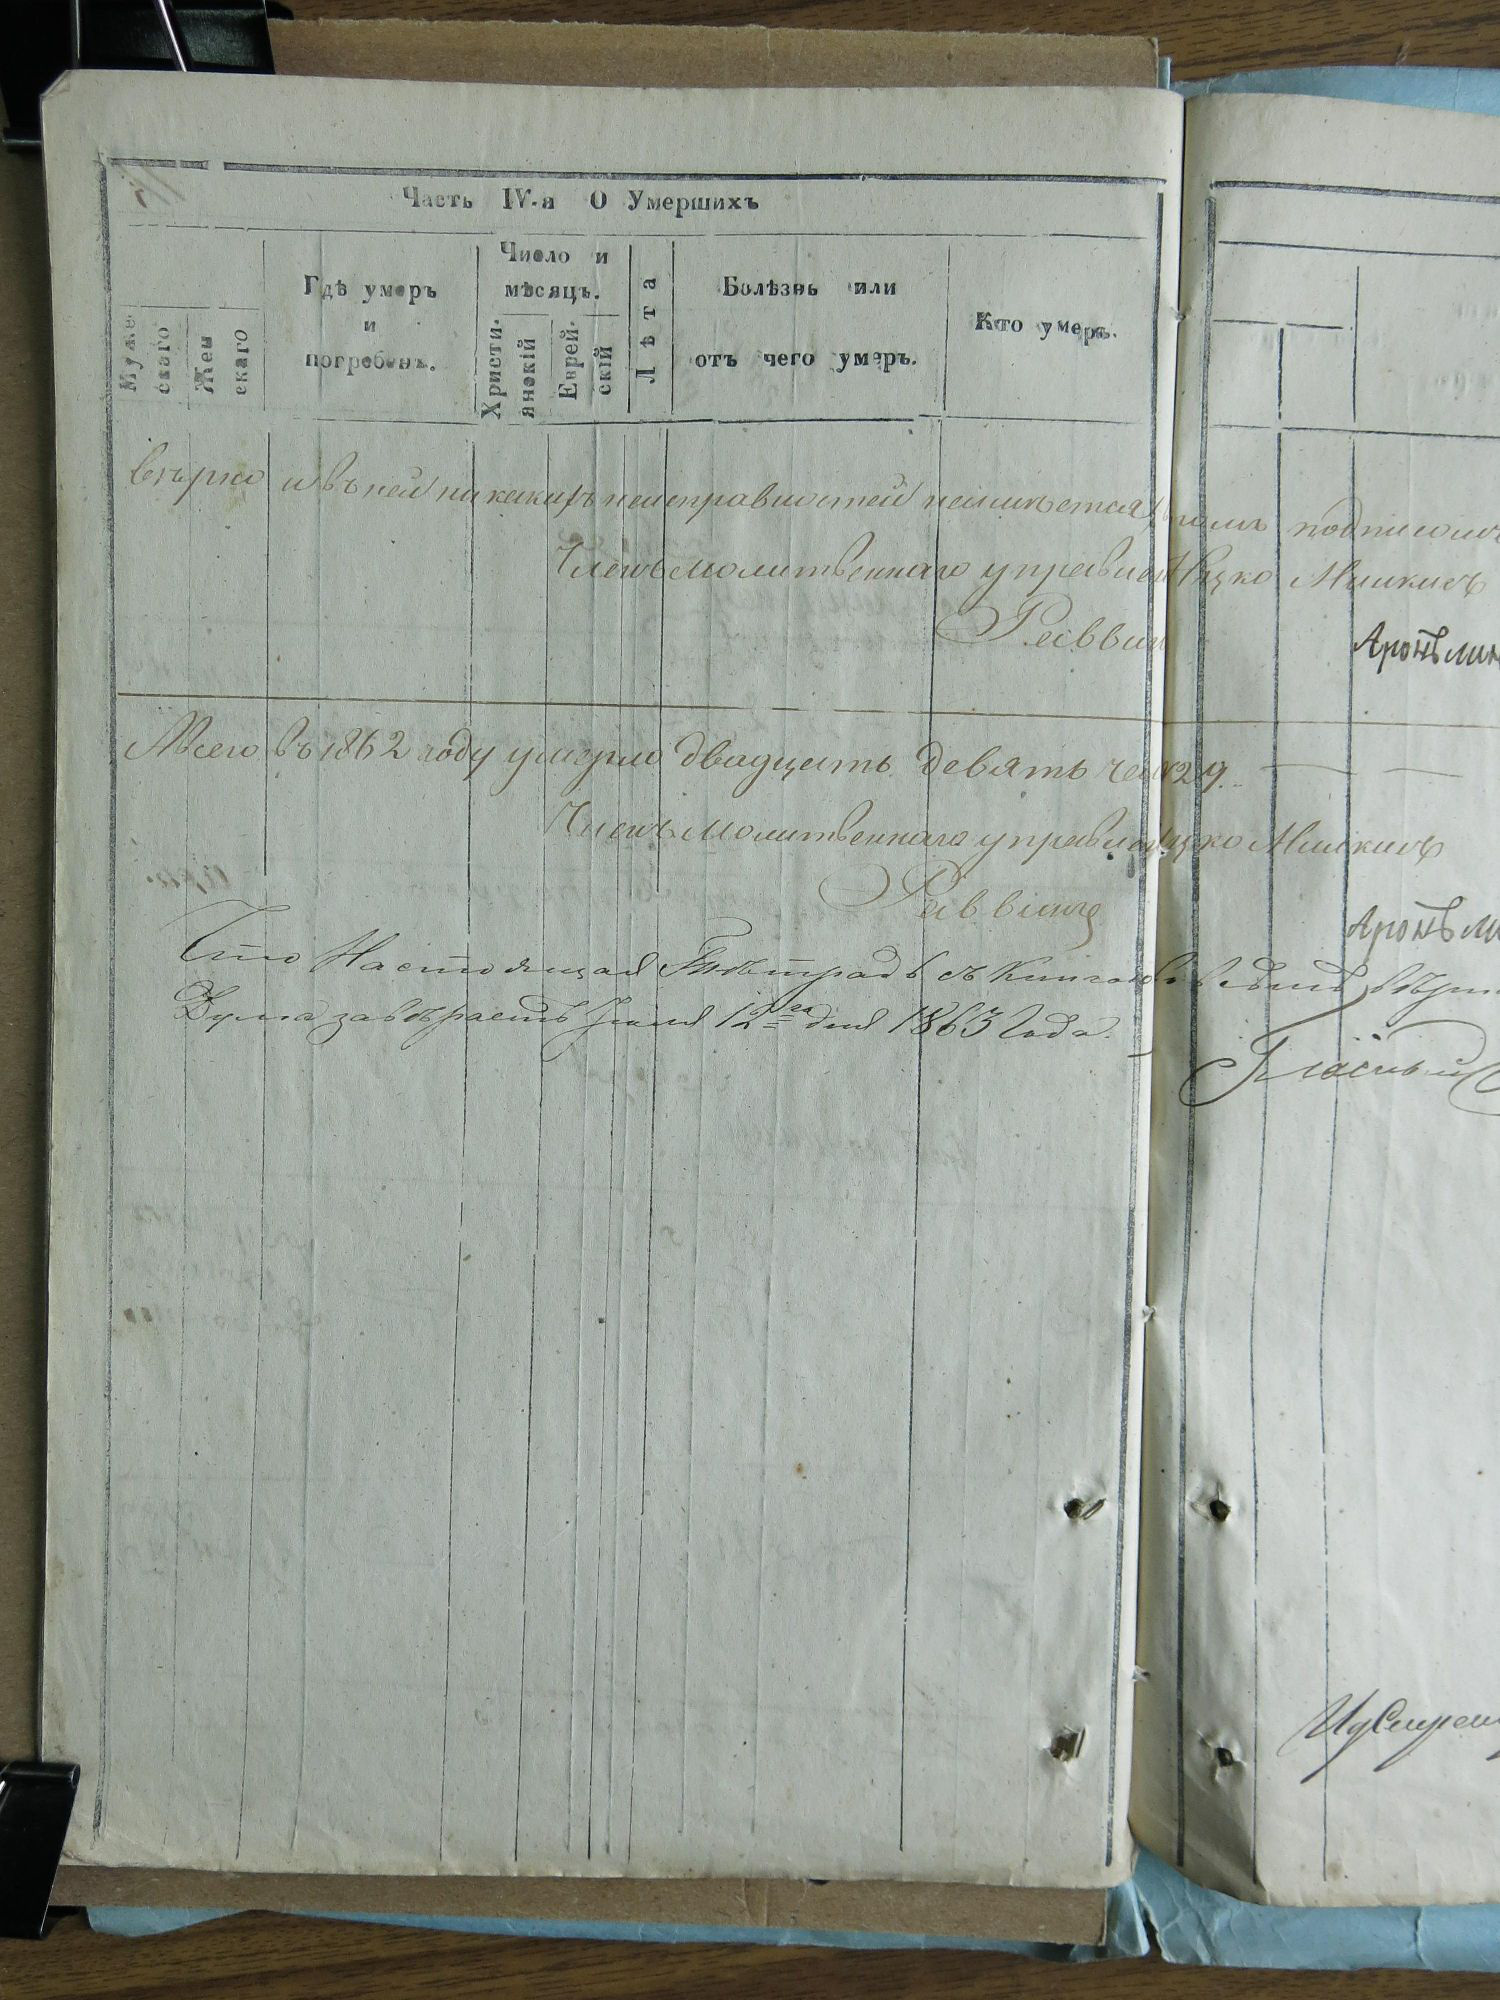 Часть IV-я О Умершихъ
Муже скаго
Жен скаго
Гдѣ умеръ и погребенъ.
Число и мѣсяцъ.
Христи- анскій
Еврей- скій
Лѣта
Болѣзнь или отъ чего умеръ.
Кто умеръ.
вѣрно и въ ней никакихъ неисправностей неимѣется въ томъ подписомъ
Членъ молитвеннаго управле Ицко Мишкинъ
Раввин
Аронъ
Всего въ 1862 году умерло двадцать девять чел 29.
Членъ молитвеннаго управле Ицко Мишкинъ
Раввинъ
Аронъ
Что Настоящая Тѣтрадь съ Книгою вѣрн
Дума завѣраетъ Іюля 12го дня 1863 Года.
Гласный